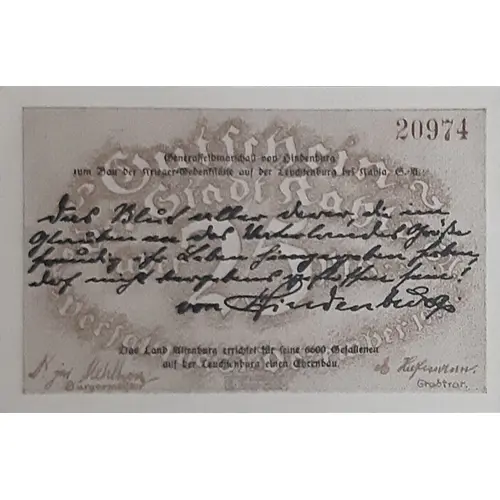 20974
Generalfeldmarschall von Hindenburg
zum Bau der Krieger-Gedenkstätte auf der Leuchtenburg bei Kahla, S.-A.:
Gutschein
Stadt Kahla
Das Blut aller derer, die im
Glauben an des Vaterlandes Größe
freudig ihr Leben hingegeben haben,
darf nicht vergebens geflossen sein!
von Hindenburg
Das Land Altenburg errichtet für seine 6600 Gefallenen
auf der Leuchtenburg einen Ehrenbau.
Bürgermeister